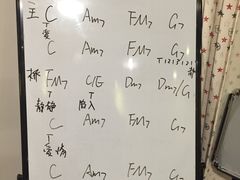 主 C Am7 FM7 G7
T
爱
C Am7 FM7 G7
T1213121
排 FM7 C/G Dm7 Dm7/G
T T
静静 陷入
C Am7 FM7 G7
T
爱情
C Am7 FM7 G7